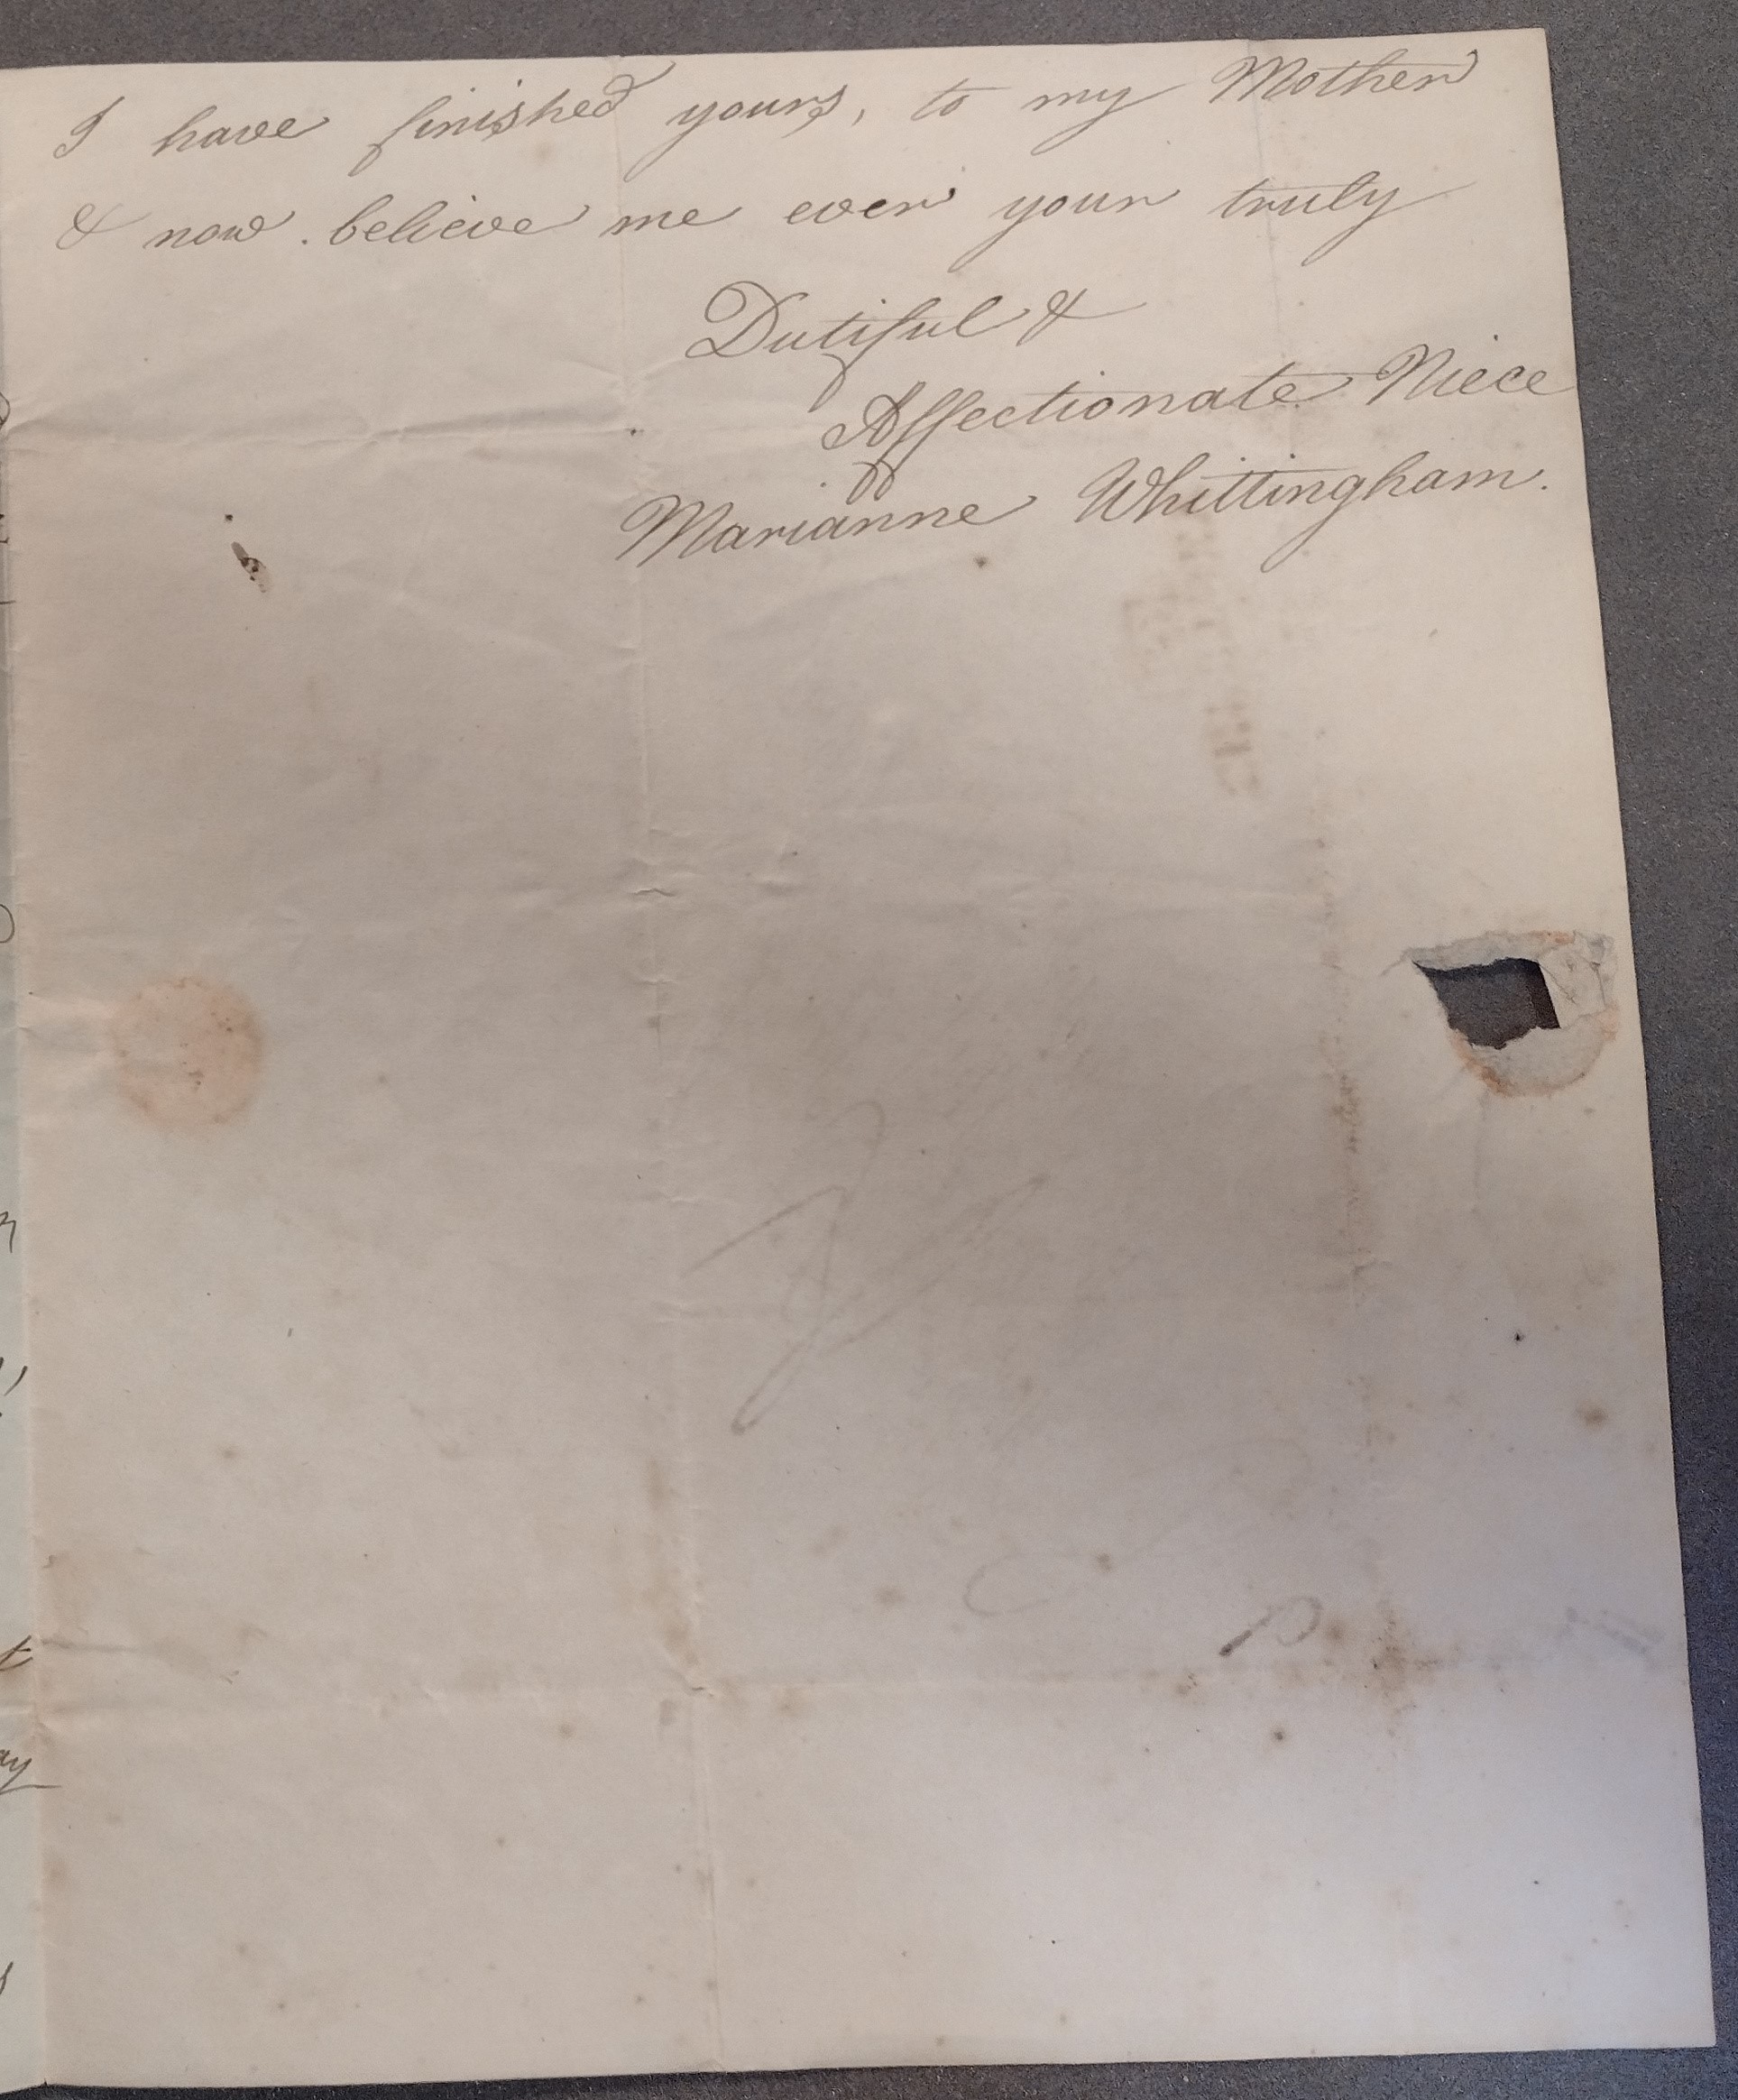 I have finished yours, to my Mother
& now . believe me ever your truly
Dutiful &
Affectionate Niece
Marianne Whittingham.